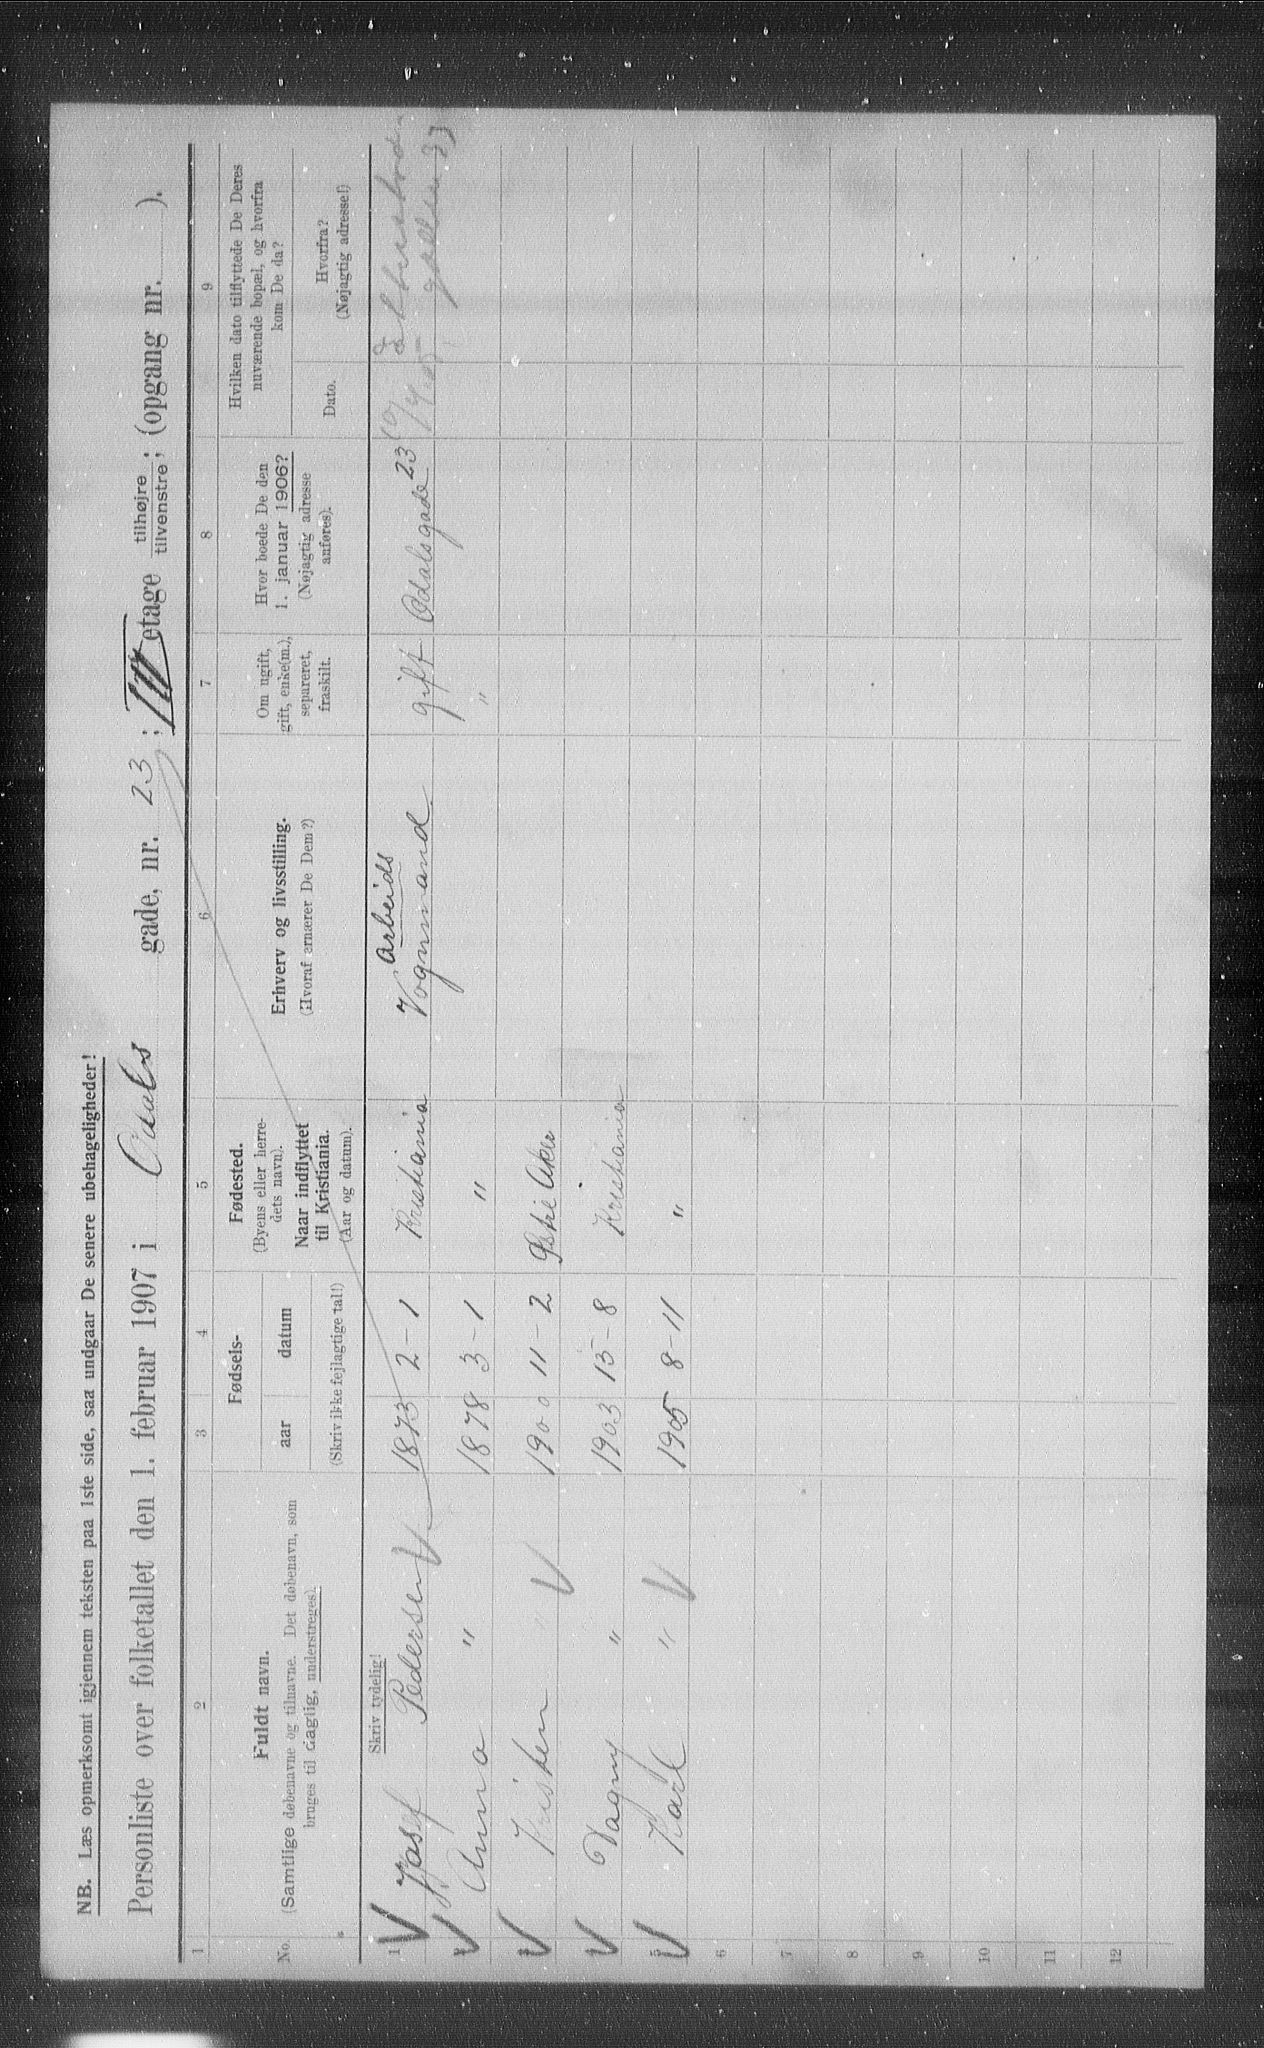 NB. Læs opmerksomt igjennem teksten paa 1ste side, saa undgaar De senere ubehageligheder!
Personliste over folketallet den 1. februar 1907 i Odals gade, nr. 23; III etage tilhøjre tilvenstre; (opgang nr. ).
1 2 3 4 5 6 7 8 9
No.
Fuldt navn.
(Samtlige døbenavne og tilnavne. Det døbenavn, som
bruges til daglig, understreges).
Skriv tydelig!
Fødsels-
aar datum
(Skriv ikke fejlagtige tal!)
Fødested.
(Byens eller herre-
dets navn).
Naar indflyttet
til Kristiania.
(Aar og datum).
Erhverv og livsstilling.
(Hvoraf ernærer De Dem?)
Om ugift,
gift, enke(m.),
separeret,
fraskilt.
Hvor boede De den
1. januar 1906?
(Nøjagtig adresse
anføres).
Hvilken dato tilflyttede De Deres
nuværende bopæl, og hvorfra
kom De da?
Dato.
Hvorfra?
(Nøjagtig adresse!)
arbeids
1 Josef Pedersen 1873 2-1 Kristiania Vognmand gift Odalsgade 23
Anna " 1878 3-1 " "
Kristen " 1900 11-2 Østre Aker
Dagny " 1903 15-8 Kristiania
5 Karl " 1905 8-11 "
6
7
8
9
10
11
12